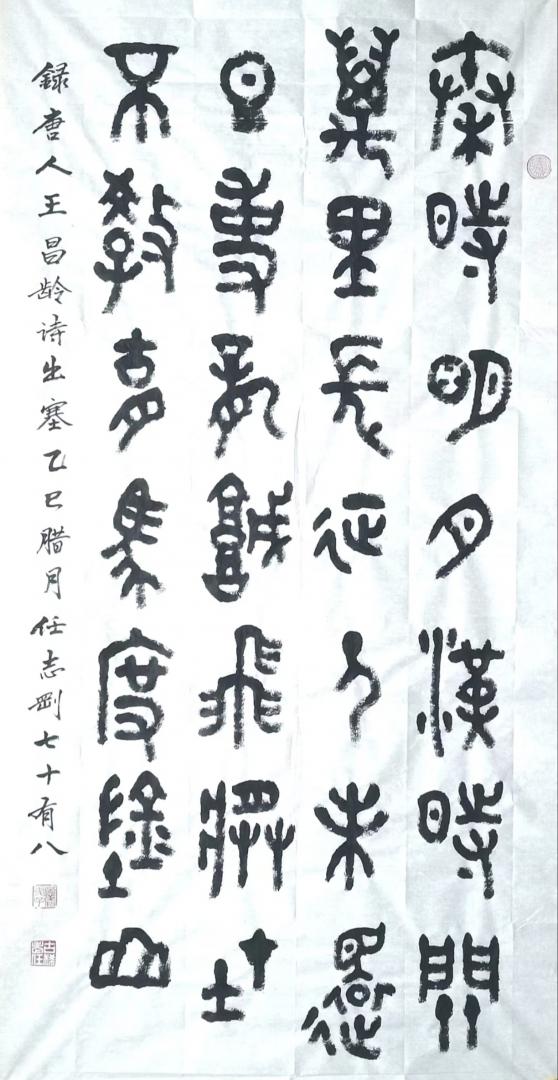 秦時明月漢時關
萬里長征人未還
旦使龍城飛將在
不教胡馬度陰山
録唐人王昌龄诗出塞乙巳腊月任志剛七十有八